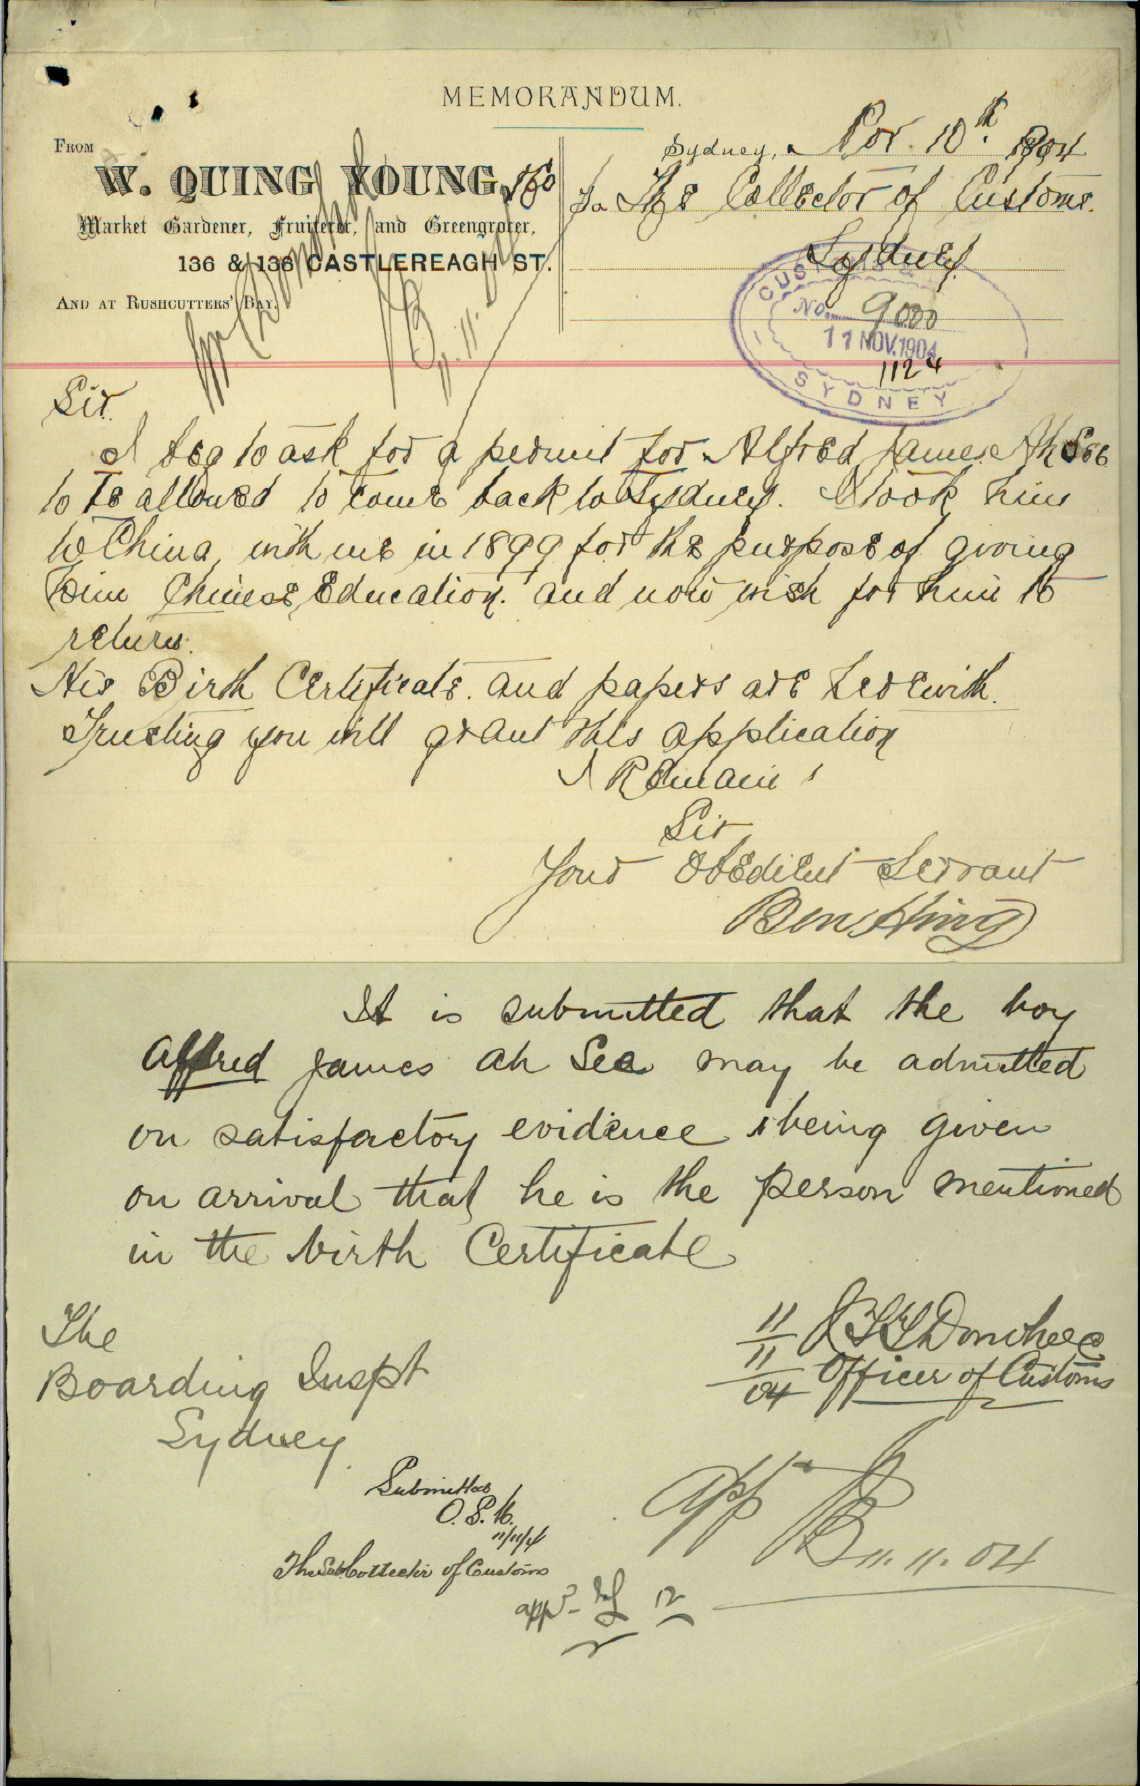 MEMORANDUM.
FROM
W. QUING YOUNG,
Market Gardener, Fruiterer, and Greengrocer,
136 & 138 CASTLEREAGH ST.
AND AT RUSHCUTTERS' BAY.
Sydney, Nov. 10th 1904
To The Collector of Customs.
Sydney
CUSTOMS
No. 9000
11 NOV. 1904
1124
SYDNEY
Sir.
I beg to ask for a permit for Alfred James Ah See
to be allowed to come back to Sydney. I took him
to China with me in 1899 for the purpose of giving
him Chinese Education. and now wish for him to
return.
His Birth Certificate. and papers are herewith.
Trusting you will grant this application
I Remain
Sir
Your Obedient Servant
Ben Hing
It is submitted that the boy
Alfred James Ah See may be admitted
on satisfactory evidence being given
on arrival that he is the person mentioned
in the birth Certificate
11/11/04 Donohoe
Officer of Customs
The
Boarding Inspt
Sydney
Submitted
11/11/4
The Sub Collector of Customs
app
11.11.04
appd 12